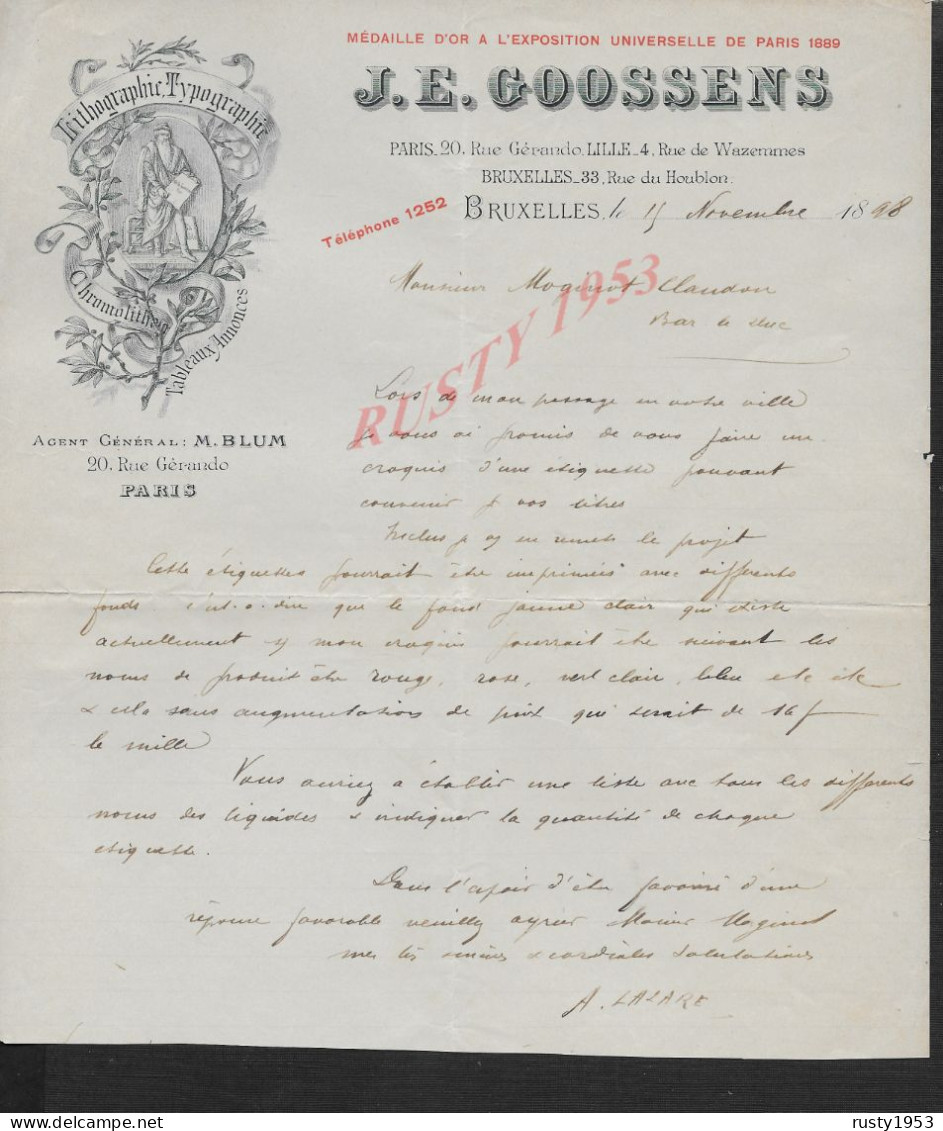 MÉDAILLE D'OR A L'EXPOSITION UNIVERSELLE DE PARIS 1889
J.E. GOOSSENS
PARIS_20, Rue Gérando. LILLE_4, Rue de Wazemmes
BRUXELLES_33, Rue du Houblon.
Téléphone 1252
BRUXELLES, le 15 Novembre 1898
Lithographie, Typographie
Chromolithie
Tableaux Annonces
AGENT GÉNÉRAL: M. BLUM
20, Rue Gérando
PARIS
Monsieur Maginot Claudon
Bar le Duc
RUSTY 1953
Lors de mon passage en votre ville
je vous ai promis de vous faire un
croquis d'une étiquette pouvant
convenir à vos litres
Inclus j' en remets le projet
Cette étiquettes pourrait être imprimées avec differents
fonds. c'est-a-dire que le fond jaune clair qui existe
actuellement mon croquis pourrait être suivant les
noms de produit être rouge, rose, vert clair, bleu etc etc
& cela sans augmentations de prix qui serait de 16 f
le mille
Vous auriez a établir une liste avec tous les differents
noms des liquides & indiquer la quantité de chaque
étiquette.
Dans l'espoir d'être favorisé d'une
réponse favorable veuillez agréer Monsieur Maginot
mes sincères & cordiales Salutations
A. LAZARE
delcampe.net
rusty1953